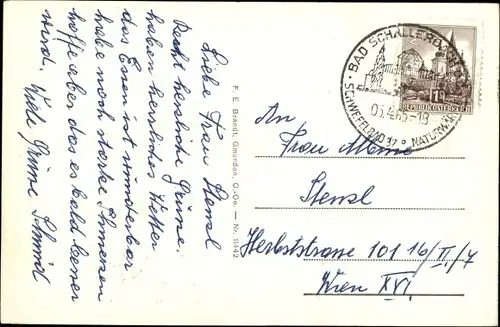 Liebe Frau Stensl
Recht herzliche Grüsse.
haben herrliches Wetter
das Essen ist wunderbar
habe noch starke Schmerzen
hoffe aber das es bald besser
wird. Viele Grüsse Schmid
F. E. Brandt, Gmunden, O.-Oe. — Nr. 11442
BAD SCHALLERBACH
SCHWEFELBAD 37° NATURWARM
05.4.65-18
REPUBLIK ÖSTERREICH
An
Frau
Stensl
Herbststrasse 101 16/II./7
Wien XVI.